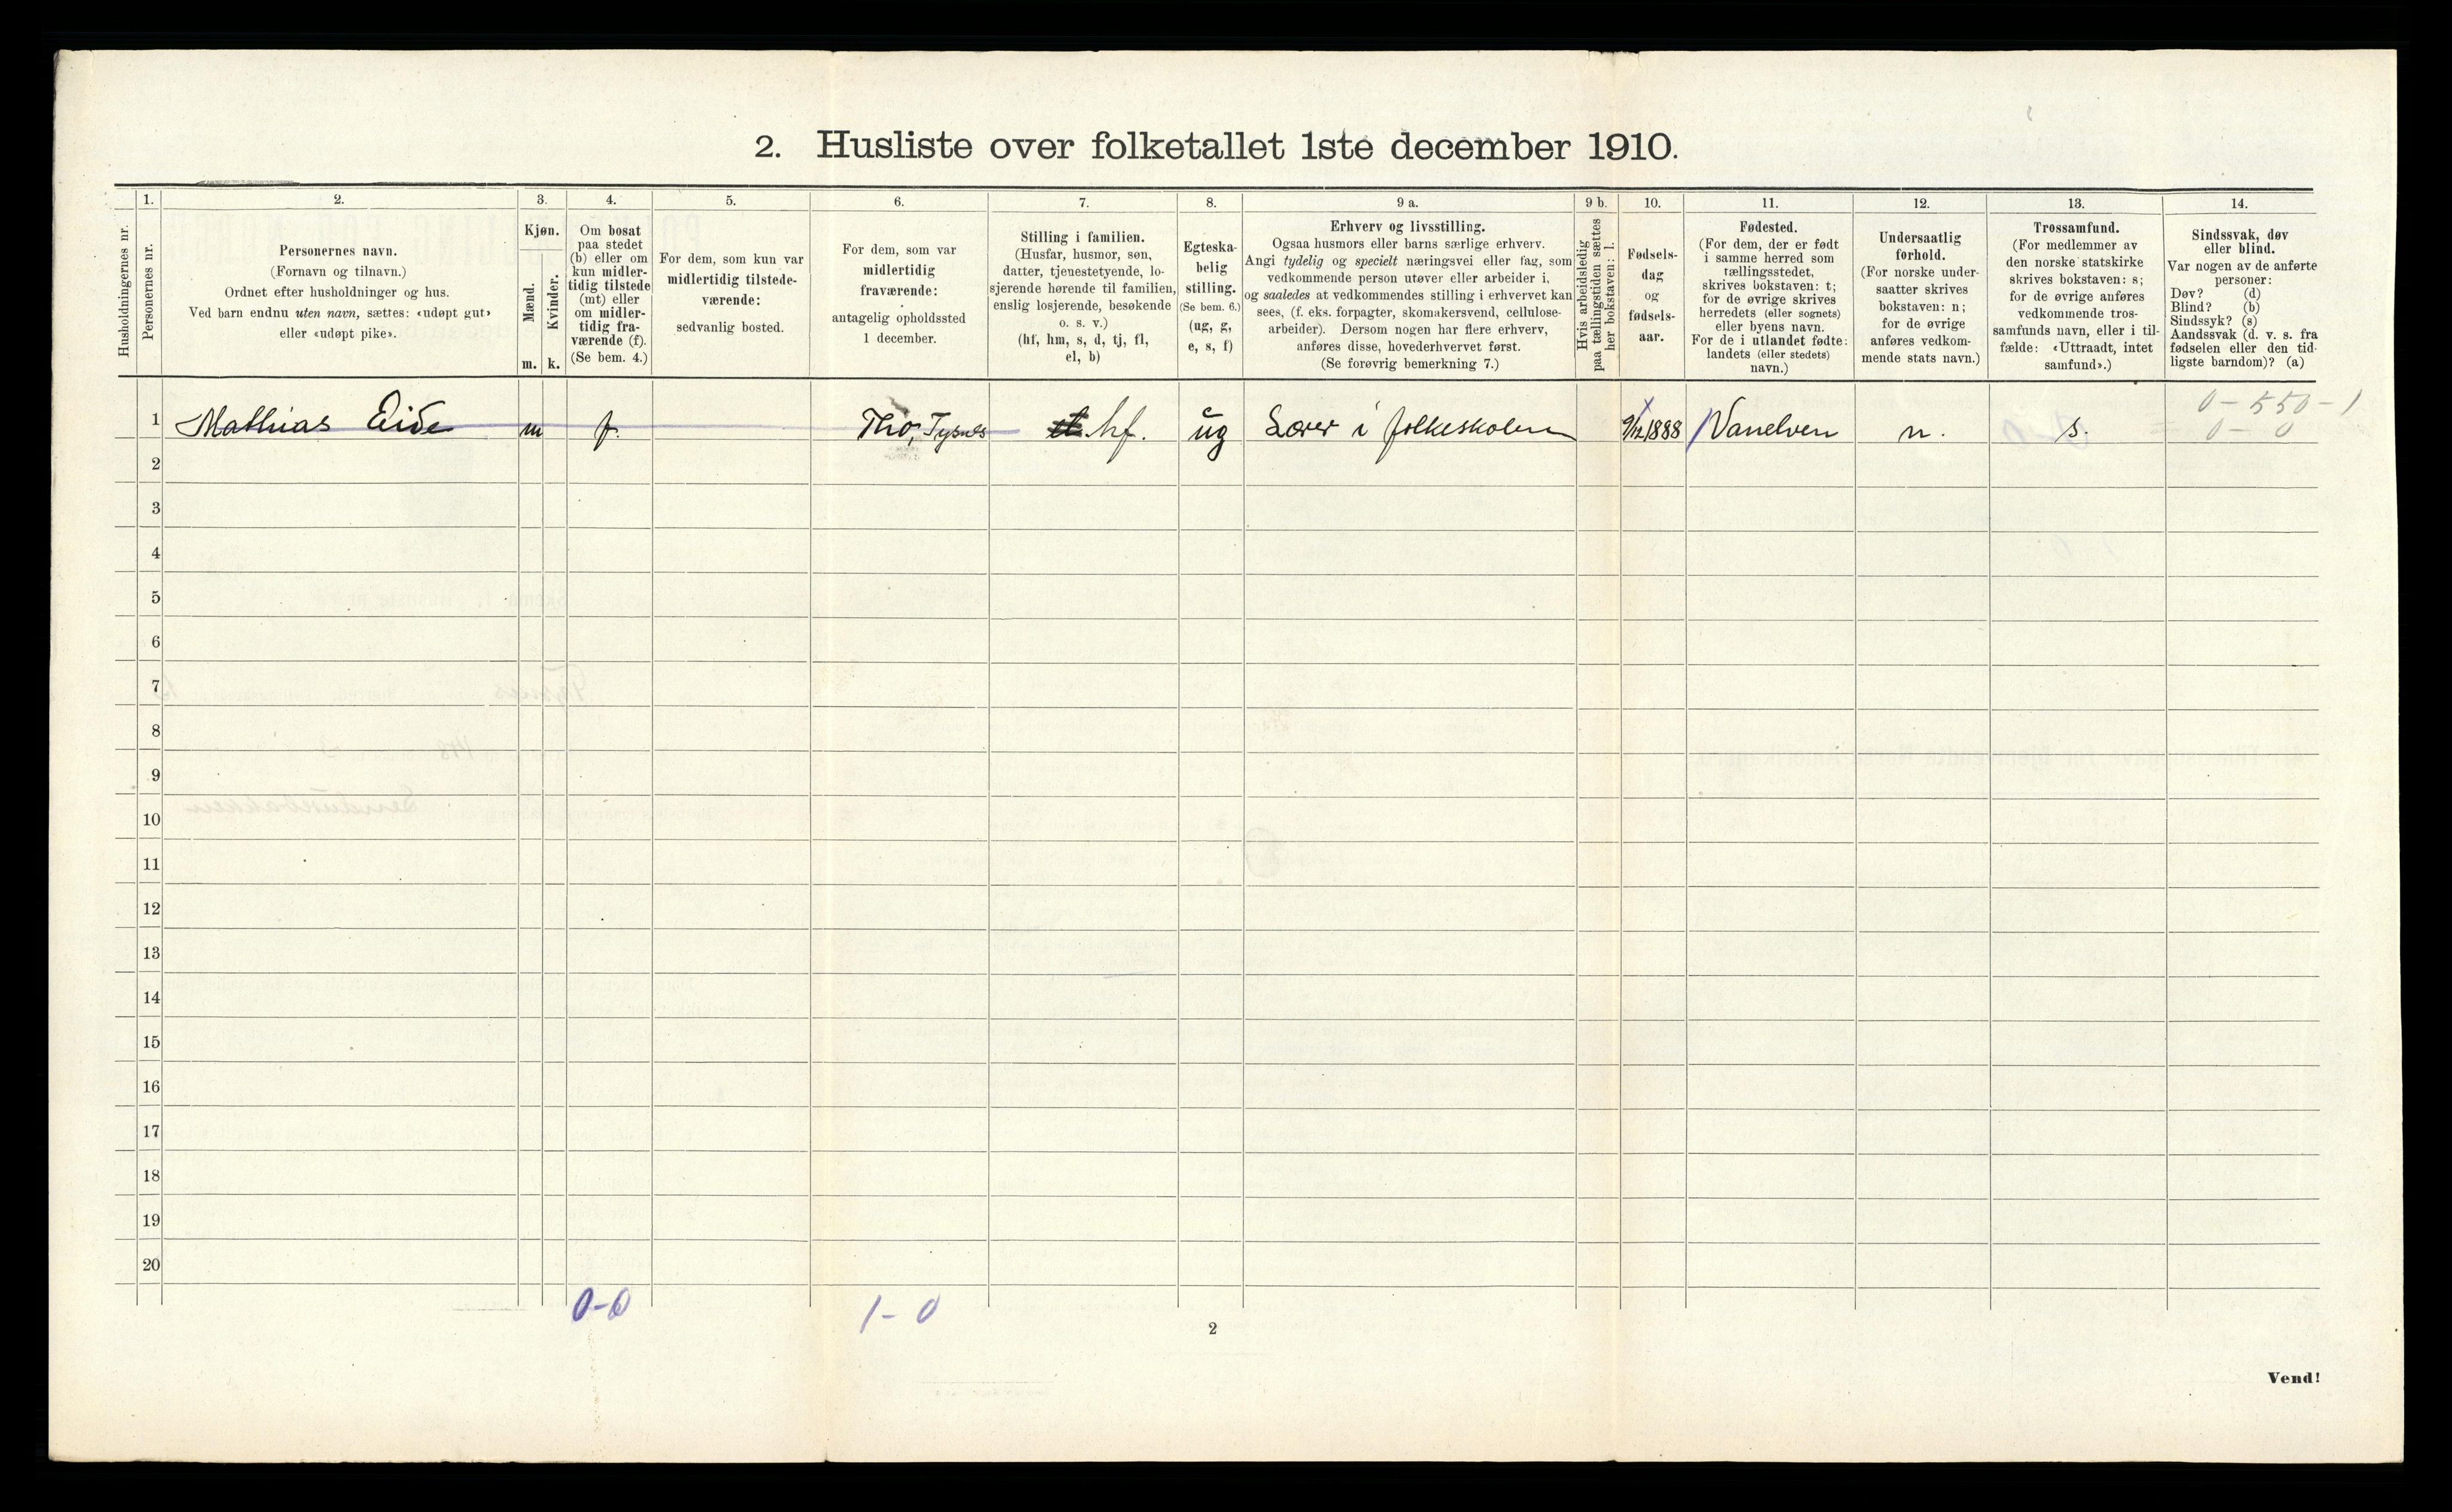 2. Husliste over folketallet 1ste december 1910.
Husholdningernes nr.
1.
Personernes nr.
2.
Personernes navn.
(Fornavn og tilnavn.)
Ordnet efter husholdninger og hus.
Ved barn endnu uten navn, sættes: «udøpt gut»
eller «udøpt pike».
3.
Kjøn.
Mænd.
Kvinder.
m. k.
4.
Om bosat
paa stedet
(b) eller om
kun midler-
tidig tilstede
(mt) eller
om midler-
tidig fra-
værende (f).
(Se bem. 4.)
5.
For dem, som kun var
midlertidig tilstede-
værende:
sedvanlig bosted.
6.
For dem, som var
midlertidig
fraværende:
antagelig opholdssted
1 december.
7.
Stilling i familien.
(Husfar, husmor, søn,
datter, tjenestetyende, lo-
sjerende hørende til familien,
enslig losjerende, besøkende
o. s. v.)
(hf, hm, s, d, tj, fl,
el, b)
8.
Egteska-
belig
stilling.
(Se bem. 6.)
(ug, g,
e, s, f)
9 a.
Erhverv og livsstilling.
Ogsaa husmors eller barns særlige erhverv.
Angi tydelig og specielt næringsvei eller fag, som
vedkommende person utøver eller arbeider i,
og saaledes at vedkommendes stilling i erhvervet kan
sees, (f. eks. forpagter, skomakersvend, cellulose-
arbeider). Dersom nogen har flere erhverv,
anføres disse, hovederhvervet først.
(Se forøvrig bemerkning 7.)
9 b.
Hvis arbeidsledig
paa tællingstiden sættes
her bokstaven: l.
10.
Fødsels-
dag
og
fødsels-
aar.
11.
Fødested.
(For dem, der er født
i samme herred som
tællingsstedet,
skrives bokstaven: t;
for de øvrige skrives
herredets (eller sognets)
eller byens navn.
For de i utlandet fødte:
landets (eller stedets)
navn.)
12.
Undersaatlig
forhold.
(For norske under-
saatter skrives
bokstaven: n;
for de øvrige
anføres vedkom-
mende stats navn.)
13.
Trossamfund.
(For medlemmer av
den norske statskirke
skrives bokstaven: s;
for de øvrige anføres
vedkommende tros-
samfunds navn, eller i til-
fælde: «Uttraadt, intet
samfund».)
14.
Sindssvak, døv
eller blind.
Var nogen av de anførte
personer:
Døv? (d)
Blind? (b)
Sindssyk? (s)
Aandssvak (d. v. s. fra
fødselen eller den tid-
ligste barndom)? (a)
0-550-1
0-0
1 Mathias Eide m f. Tho, Tysnes hf. ug Lærer i folkeskolen 9/12 1888 Vanelven n. s.
2
3
4
5
6
7
8
9
10
11
12
13
14
15
16
17
18
19
20
0-0 1-0
2
Vend!